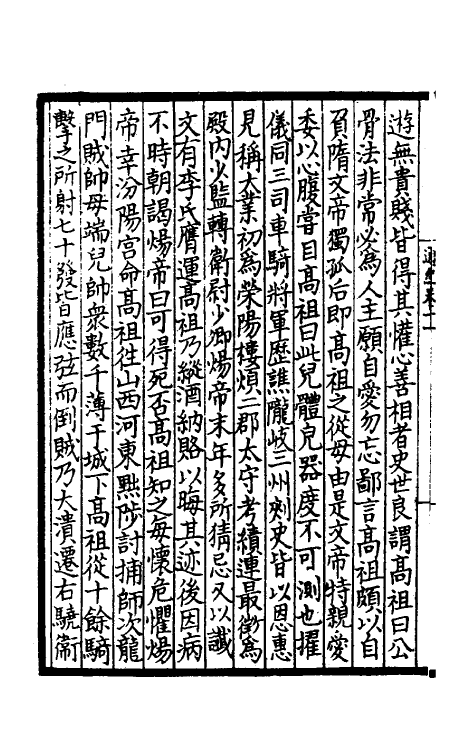 遊無貴賤皆得其懽心善相者史世良謂高祖曰公
骨法非常必為人主願自愛勿忘鄙言高祖頗以自
負隋文帝獨孤后即高祖之從母由是文帝特親愛
委以心腹嘗目高祖曰此兒體皃器度不可測也擢
儀同三司車騎將軍歷譙隴岐三州刺史皆以恩惠
見稱大業初為滎陽樓煩二郡太守考績連最徵為
殿內少監轉衛尉少卿煬帝末年多所猜忌又以讖
文有李氏膺運高祖乃縱酒納賂以晦其迹後因病
不時朝謁煬帝曰可得死否高祖知之每懷危懼煬
帝幸汾陽宮命高祖往山西河東黜陟討捕師次龍
門賊帥毋端兒帥衆數千薄于城下高祖從十餘騎
擊之所射七十發皆應弦而倒賊乃大潰遷右驍衛